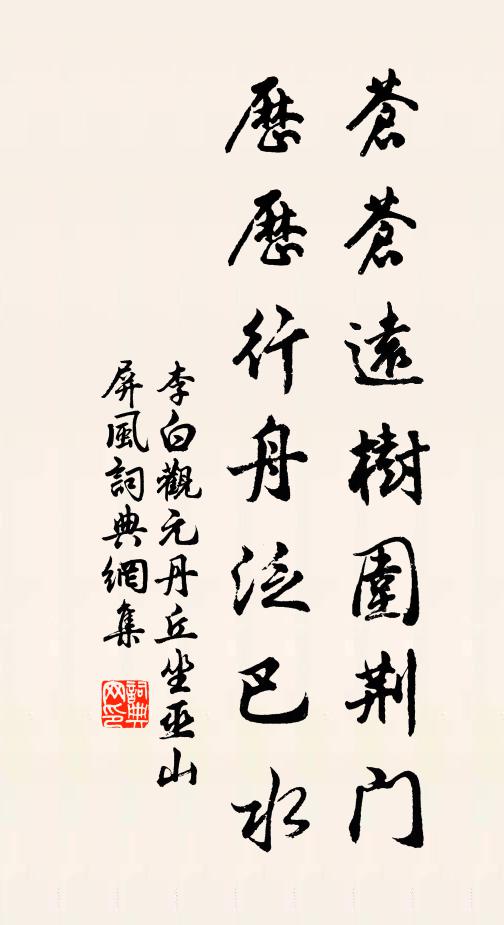 蒼蒼遠樹圍荆門
歷歷行舟泛巴水
李白觀元丹丘坐巫山
屏風詞典網集
詞典网印